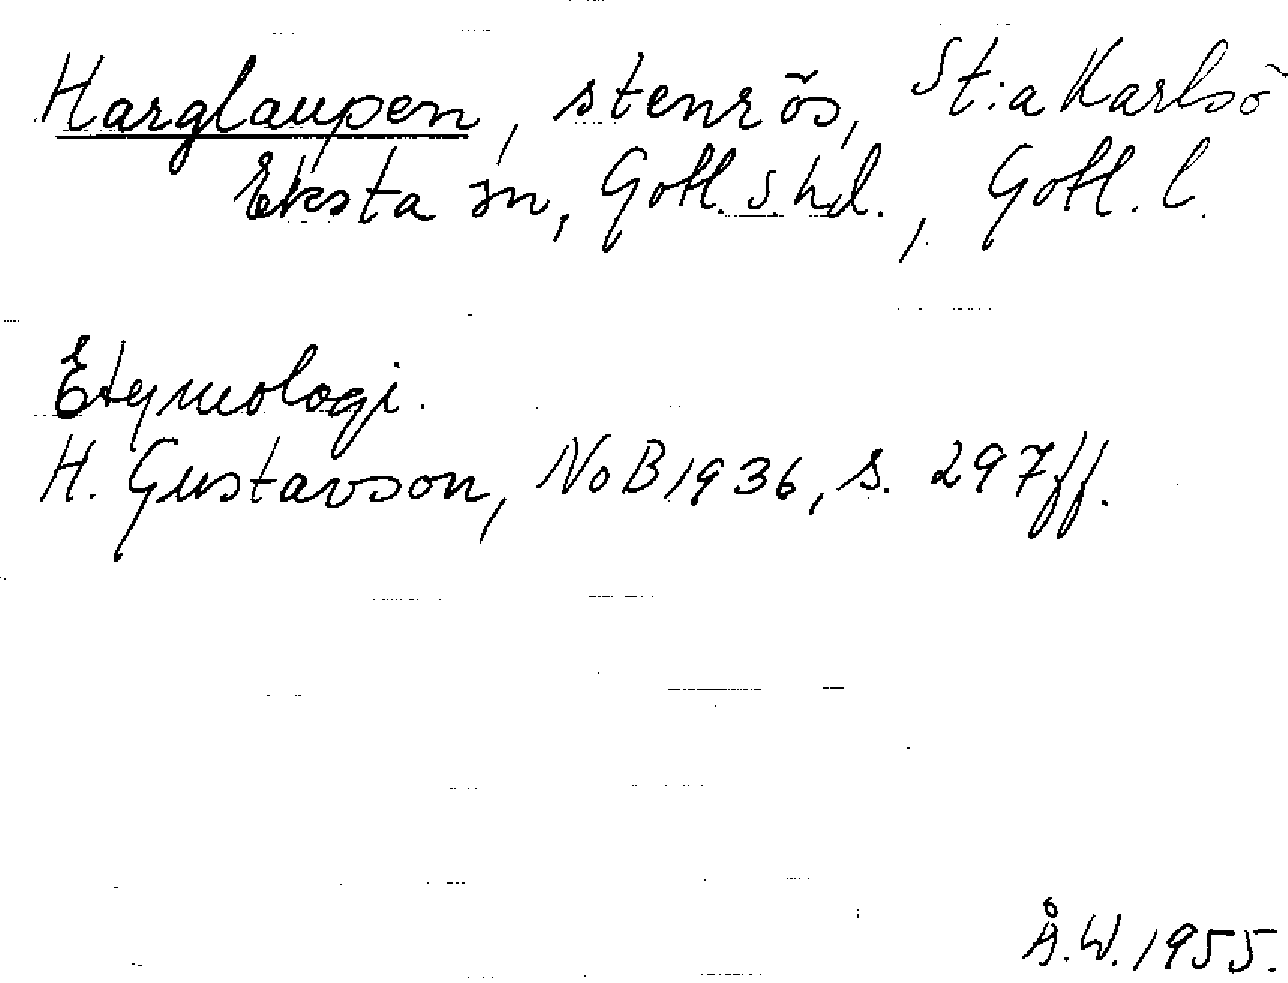 Harglaupen, stenrös, St:a Karlsö
Eksta sn, Gotl. s. hd., Gotl. l.
Etymologi.
H. Gustavson, NoB 1936, s. 297 ff.
Å.W. 1955.